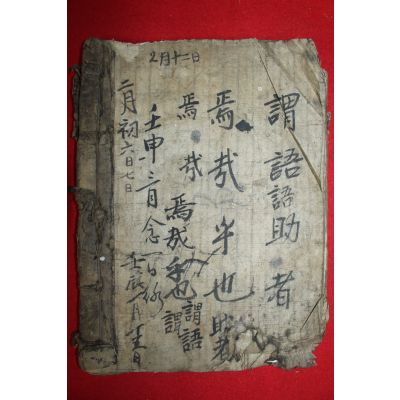 謂語語助者
焉哉乎也助者
焉哉
焉哉乎也謂語
謂
壬申二月念
二月初六日七日
2月十二日